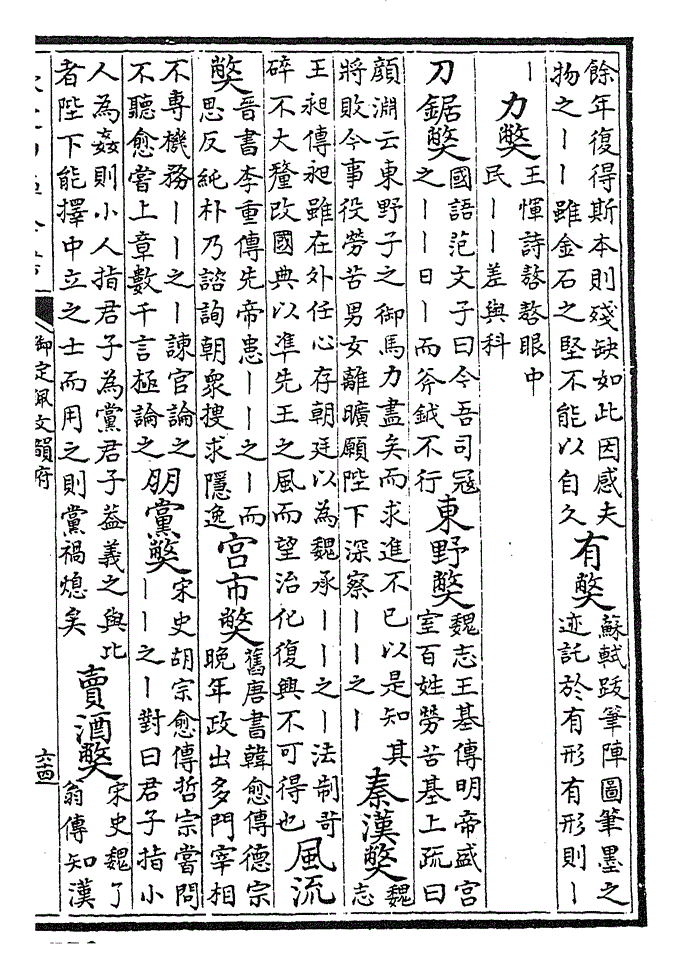 餘年復得斯本則殘缺如此因感夫
物之丨丨雖金石之堅不能以自久
有獘
蘇軾跋筆陣圖筆墨之
迹託於有形有形則丨
丨力獘
王惲詩嗸嗸眼中
民丨丨差與科
刀鋸獘
國語范文子曰今吾司冦
之丨丨日丨而斧鉞不行
東野獘
魏志王基傳明帝盛宫
室百姓勞苦基上疏曰
顔淵云東野子之御馬力盡矣而求進不已以是知其
將敗今事役勞苦男女離曠願陛下深察丨丨之丨
秦漢獘
魏
志
王昶傳昶雖在外任心存朝廷以為魏承丨丨之丨法制苛
碎不大釐改國典以凖先王之風而望治化復興不可得也
風流
獘
晉書李重傳先帝患丨丨之丨而
思反純朴乃諮詢朝衆搜求隱逸
宫市獘
舊唐書韓愈傳德宗
晚年政出多門宰相
不專機務丨丨之丨諫官論之
不聽愈嘗上章數千言極論之
朋黨獘
宋史胡宗愈傳哲宗嘗問
丨丨之丨對曰君子指小
人為姦則小人指君子為黨君子葢義之與比
者陛下能擇中立之士而用之則黨禍熄矣
賣酒獘
宋史魏了
翁傳知漢
御定佩文韻府
六四